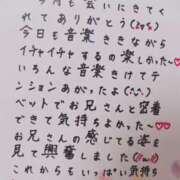 今日も会いにきてく
れてありがとう
今日も音楽ききながら
イチャイチャするの楽しかった〜♡
いろんな音楽きけてテ
ンションあがったよ(^^)
ベットでお兄さんと密着
できて気持ちよかった〜♡
お兄さんの感じてる姿を
見て興奮しました
これからもいっぱい気持